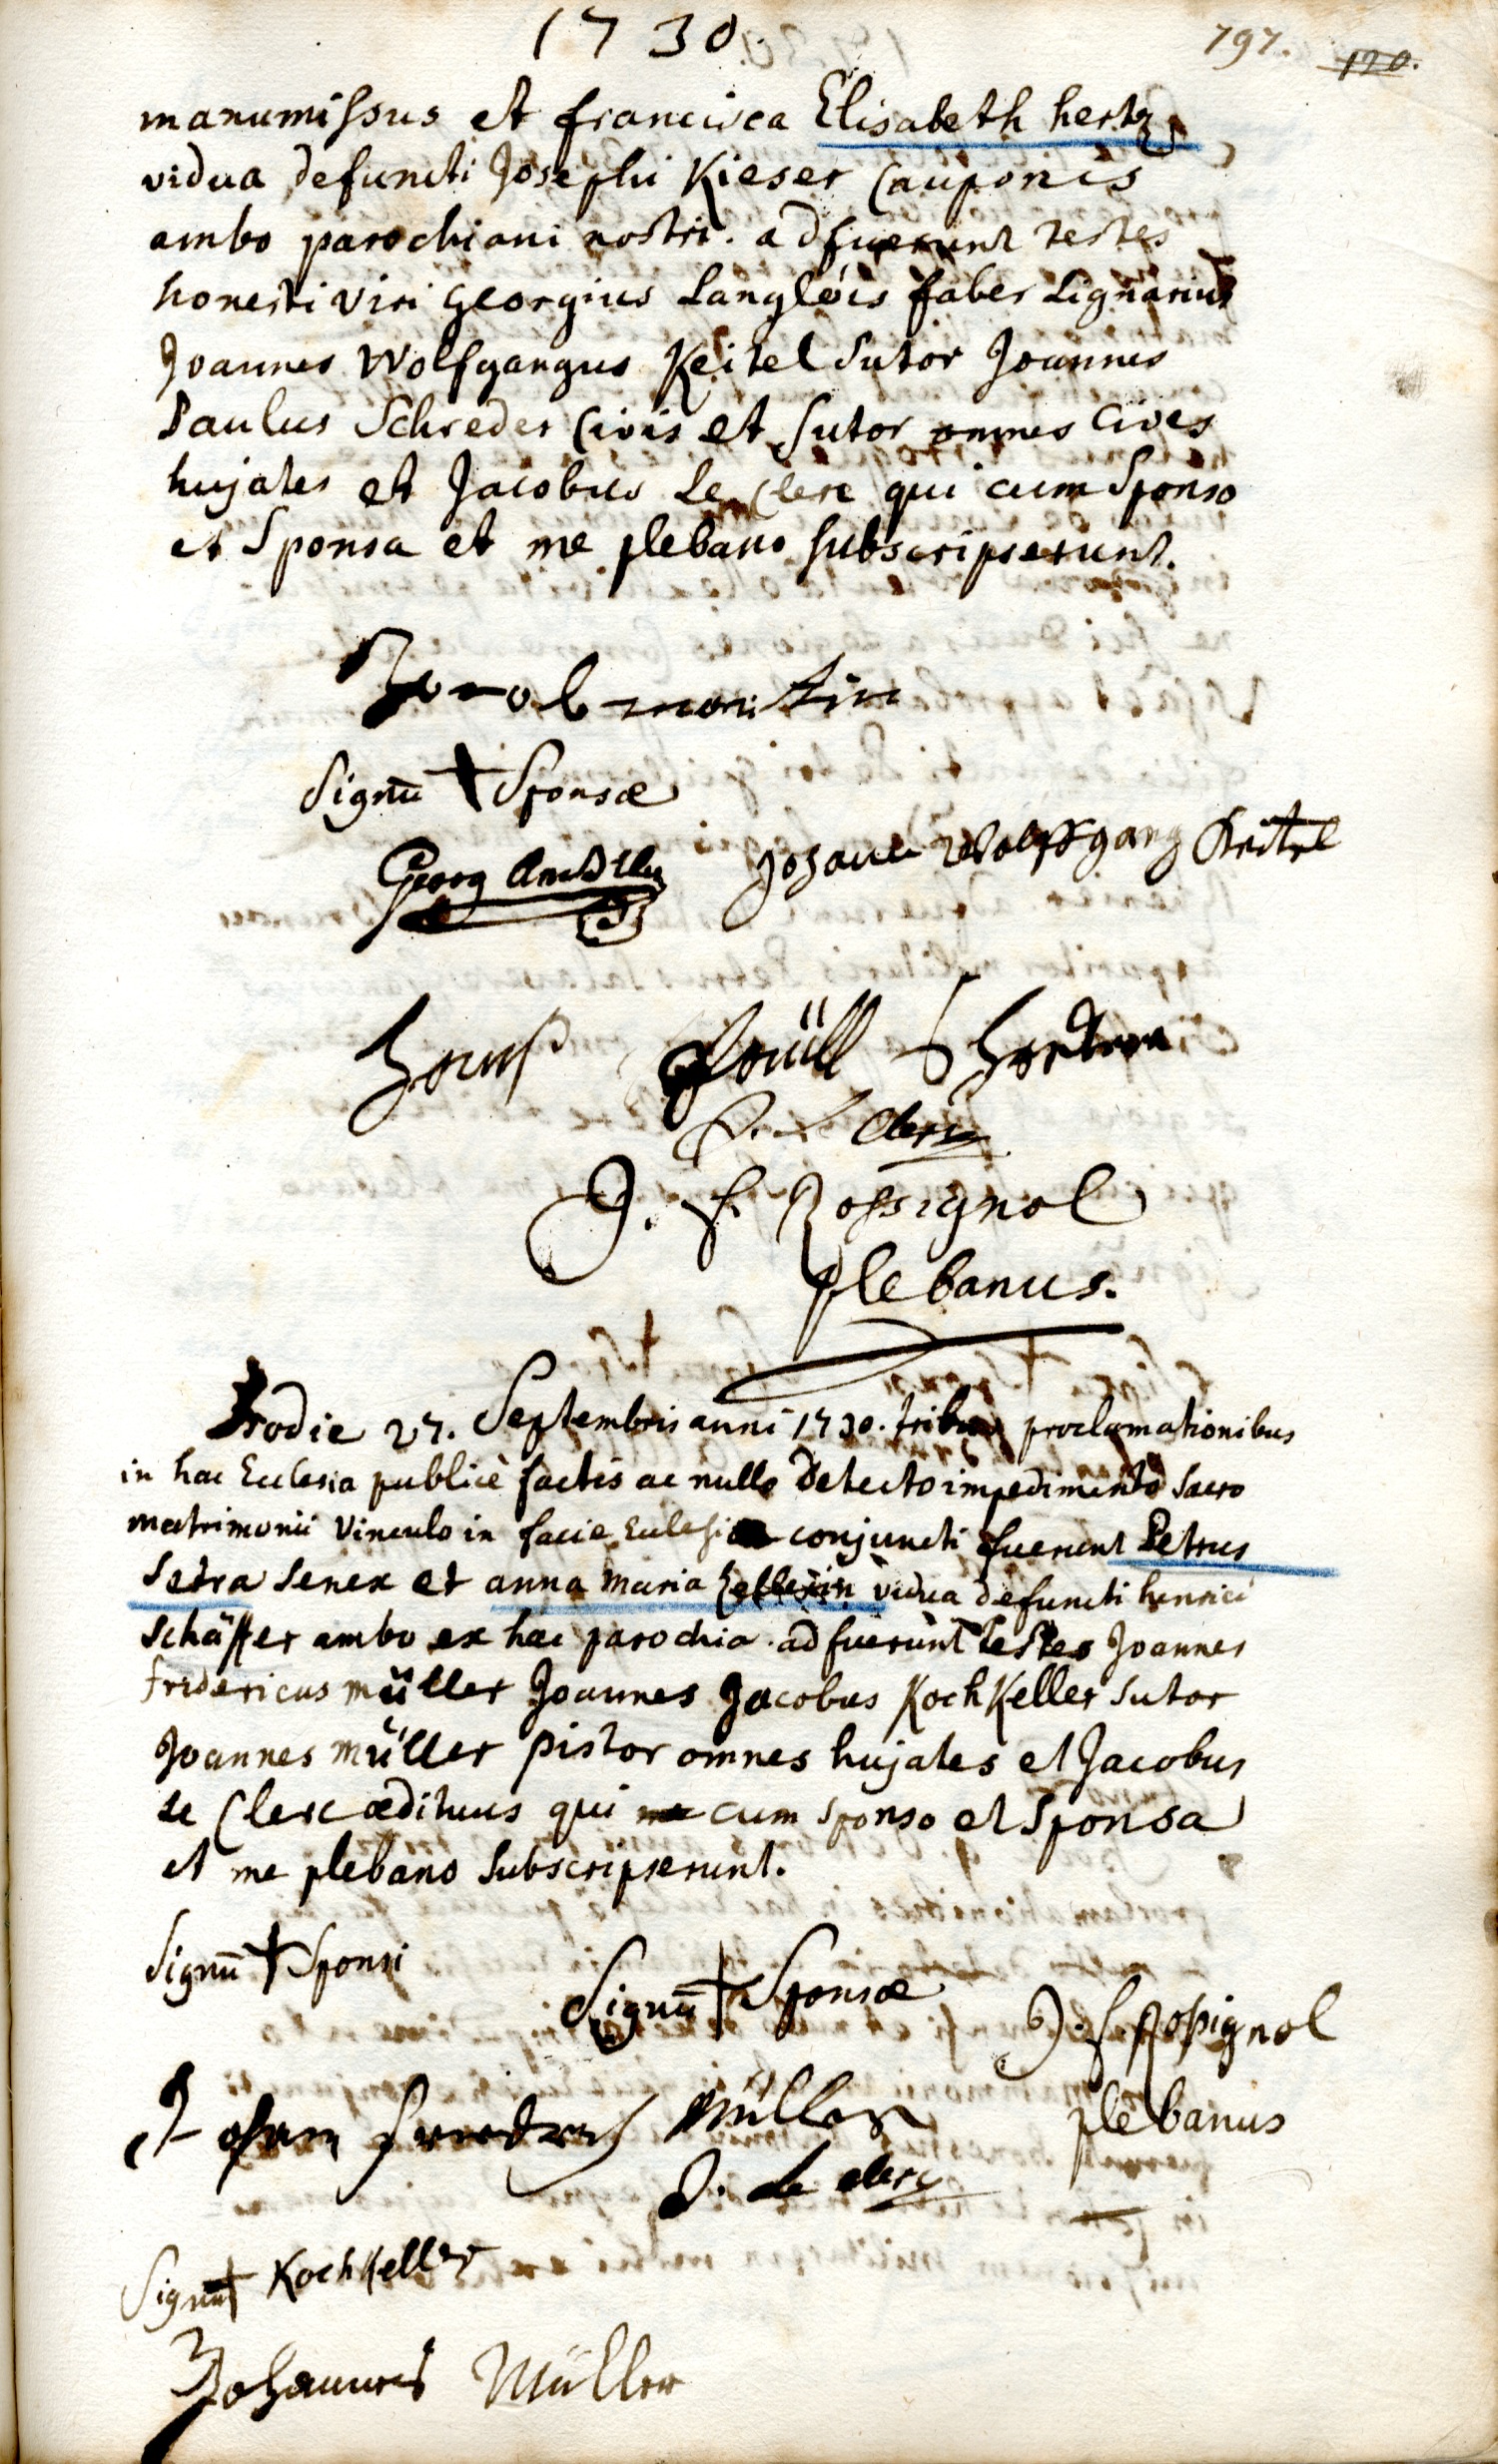 1730.
797. 120.
manumissus et francisca Elisabeth hertz
vidua defuncti Josephi Kieser Cauponis
ambo parochiani nostri. adfuerunt testes
honesti viri Georgius Langlois faber Lignarius
Joannes Wolfgangus Keitel Sutor Joannes
Paulus Schreder Civis et Sutor omnes Cives
hujates et Jacobus Le Clerc qui cum Sponso
et Sponsa et me plebano subscripserunt.
Signū + Sponsæ
Georg
Johann Wolffgang Keitel
Le Clerc
J. f. Rossignol
plebanus.
Hodie 27. Septembris anni 1730. tribus proclamationibus
in hac Ecclesia publicè factis ac nullo Detecto impedimento Sacro
matrimonii Vinculo in facie Ecclesiæ conjuncti fuerunt Petrus
Setra Senex et anna maria vidua defuncti henrici
Schäffer ambo ex hac parochia. adfuerunt testes Joannes
fridericus müller Joannes Jacobus KochKeller Sutor
Joannes müller pistor omnes hujates et Jacobus
le Clerc ædituus qui me cum sponso et Sponsa
et me plebano Subscripserunt.
Signū + Sponsi
Signū + Sponsæ
J. f. Rossignol
plebanus
Johann Müller
J. Le Clerc
Signū + KochKeller
Johannes Müller